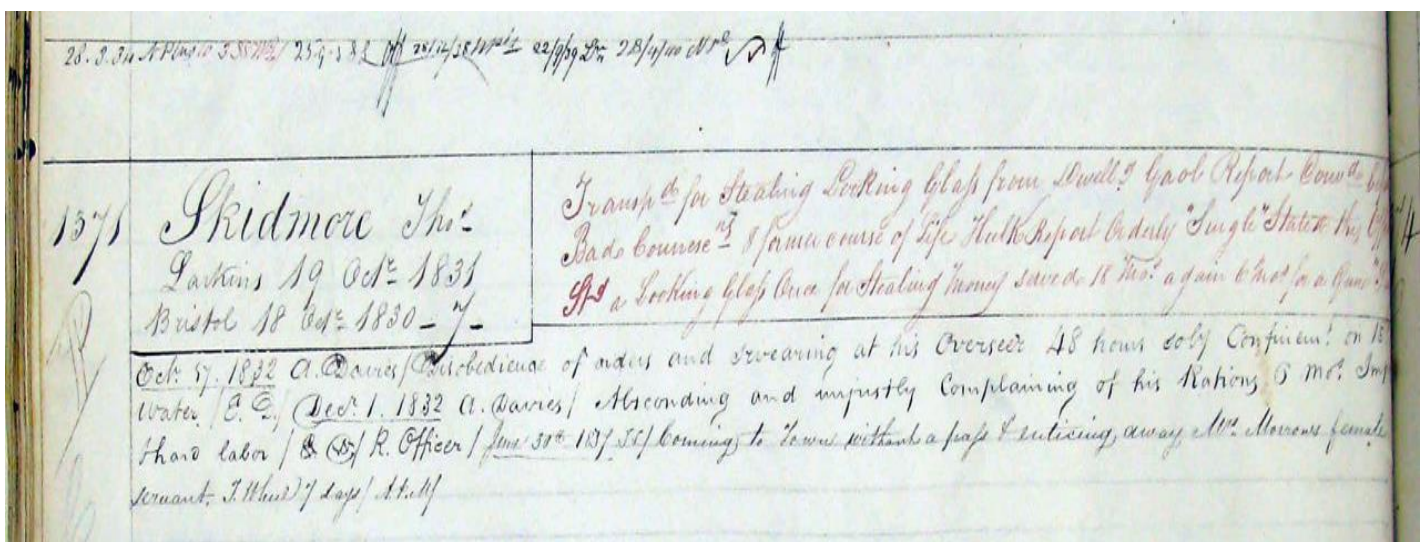 28.3.34 25.9.38 28/12/38 22/9/39 28/4/40
1371
Skidmore Thos.
Larkins 19 Octr. 1831
Bristol 18 Octr. 1830 – 7 –
Transpd. for Stealing Looking Glass from Dwellg Gaol Report Convd.
Bad Connexns & former course of Life Hulk Report Orderly "Single" States this
a Looking Glass Once for Stealing Money served 18 Mos. again 6 Mos for a
Octr. 17. 1832 A. Davies / Disobedience of orders and swearing at his Overseer 48 hours soly Confinemt. on
Water / Decr. 1. 1832 A. Davies / Absconding and unjustly Complaining of his Rations 6 Mos. Imp
Hard labor / R. Officer / June 30th 1837 Coming to Town without a pass & enticing away Mr. Morrows female
servant. 7 days /